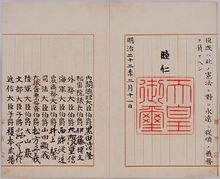 臣民ハ此ノ憲法ニ對シ永遠ニ從順ノ義務
ヲ負フヘシ
睦仁
天皇
御璽
明治二十二年二月十一日
内閣總理大臣伯爵黒田清隆
樞密院議長伯爵伊藤博文
外務大臣伯爵大隈重信
海軍大臣伯爵西郷從道
農商務大臣伯爵井上馨
司法大臣伯爵山田顯義
大藏大臣兼内務大臣伯爵松方正義
陸軍大臣伯爵大山巖
文部大臣子爵森有禮
遞信大臣子爵榎本武揚